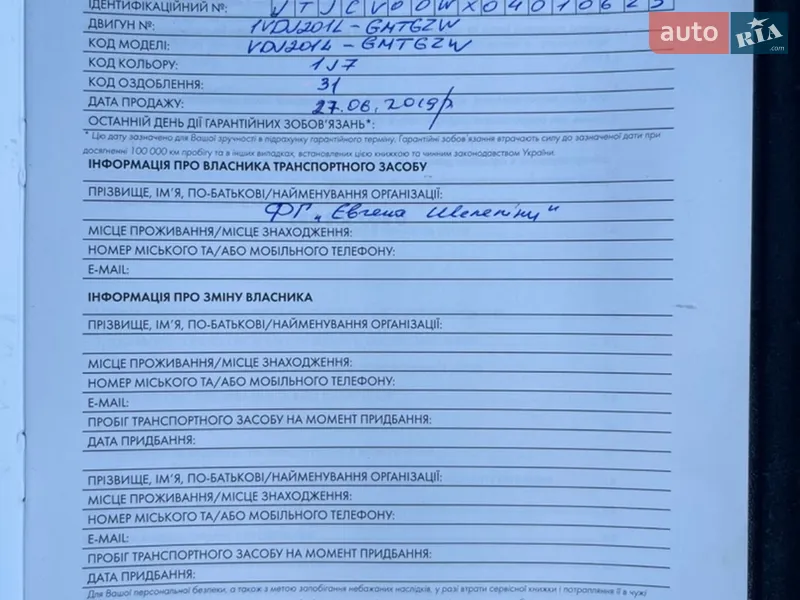 ІДЕНТИФІКАЦІЙНИЙ №: JTJCV00W
auto RIA .com
ДВИГУН №: 1VDJ201L-GMTGZW
КОД МОДЕЛІ: VDJ201L-GMTGZW
КОД КОЛЬОРУ: 1J7
КОД ОЗДОБЛЕННЯ: 31
ДАТА ПРОДАЖУ: 27.06.2019р
ОСТАННІЙ ДЕНЬ ДІЇ ГАРАНТІЙНИХ ЗОБОВ'ЯЗАНЬ*:
* Цю дату зазначено для Вашої зручності в підрахунку гарантійного терміну. Гарантійні зобов'язання втрачають силу до зазначеної дати при
досягненні 100 000 км пробігу та в інших випадках, встановлених цією книжкою та чинним законодавством України.
ІНФОРМАЦІЯ ПРО ВЛАСНИКА ТРАНСПОРТНОГО ЗАСОБУ
ПРІЗВИЩЕ, ІМ'Я, ПО-БАТЬКОВІ/НАЙМЕНУВАННЯ ОРГАНІЗАЦІЇ:
ФГ „Євгена
МІСЦЕ ПРОЖИВАННЯ/МІСЦЕ ЗНАХОДЖЕННЯ:
НОМЕР МІСЬКОГО ТА/АБО МОБІЛЬНОГО ТЕЛЕФОНУ:
E-MAIL:
ІНФОРМАЦІЯ ПРО ЗМІНУ ВЛАСНИКА
ПРІЗВИЩЕ, ІМ'Я, ПО-БАТЬКОВІ/НАЙМЕНУВАННЯ ОРГАНІЗАЦІЇ:
МІСЦЕ ПРОЖИВАННЯ/МІСЦЕ ЗНАХОДЖЕННЯ:
НОМЕР МІСЬКОГО ТА/АБО МОБІЛЬНОГО ТЕЛЕФОНУ:
E-MAIL:
ПРОБІГ ТРАНСПОРТНОГО ЗАСОБУ НА МОМЕНТ ПРИДБАННЯ:
ДАТА ПРИДБАННЯ:
ПРІЗВИЩЕ, ІМ'Я, ПО-БАТЬКОВІ/НАЙМЕНУВАННЯ ОРГАНІЗАЦІЇ:
МІСЦЕ ПРОЖИВАННЯ/МІСЦЕ ЗНАХОДЖЕННЯ:
НОМЕР МІСЬКОГО ТА/АБО МОБІЛЬНОГО ТЕЛЕФОНУ:
E-MAIL:
ПРОБІГ ТРАНСПОРТНОГО ЗАСОБУ НА МОМЕНТ ПРИДБАННЯ:
ДАТА ПРИДБАННЯ:
Для Вашої персональної безпеки, а також з метою запобігання небажаних наслідків, у разі втрати сервісної книжки і потрапляння її в чужі